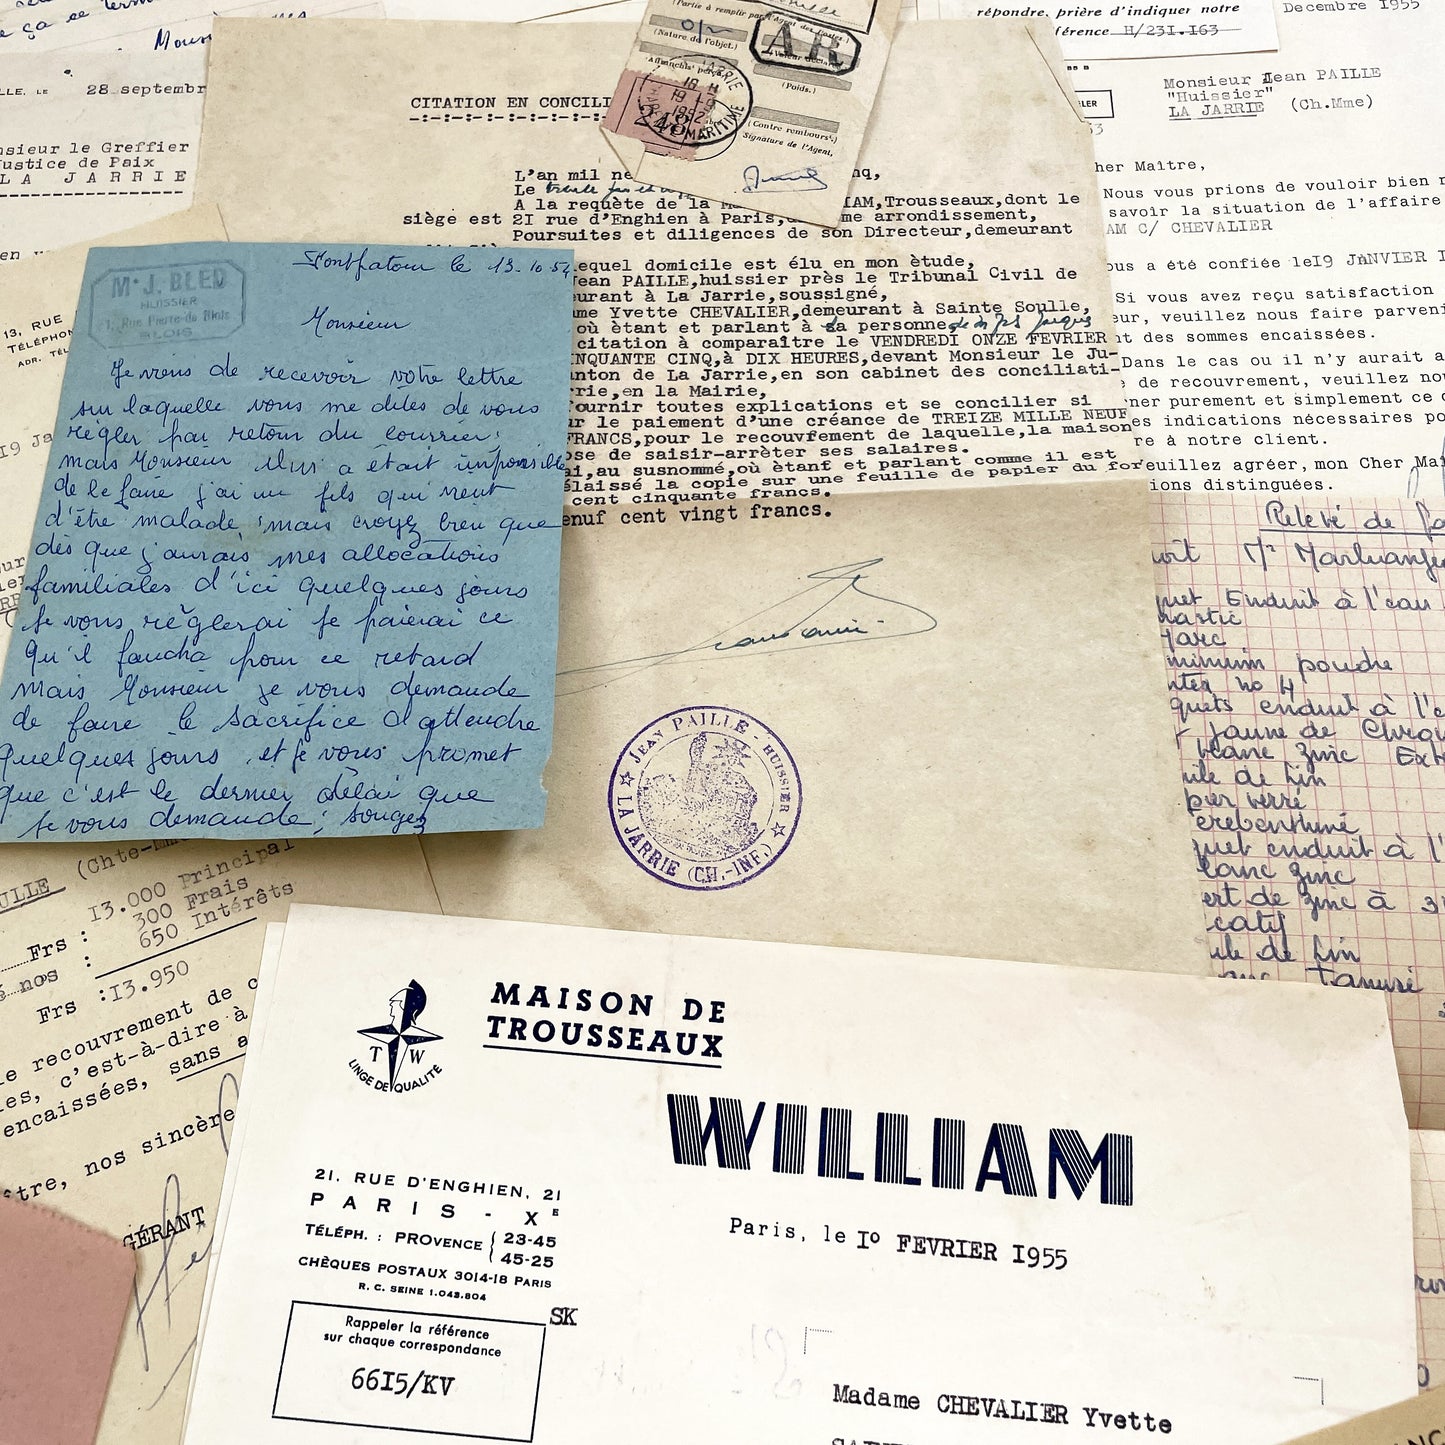 ça ce termi
28 septembr
nsieur le Greffier
Justice de Paix
LA JARRIE
CITATION EN CONCILI
L'an mil ne
nq,
Le
A la requête de la Ma
IAM,Trousseaux,dont le
siège est 2I rue d'Enghien à Paris,
me arrondissement,
Poursuites et diligences de son Directeur,demeurant
equel domicile est élu en mon ètude,
Jean PAILLE,huissier près le Tribunal Civil de
eurant à La Jarrie,soussigné,
me Yvette CHEVALIER,demeurant à Sainte Soulle,
où ètant et parlant à sa personne
citation à comparaître le VENDREDI ONZE FEVRIER
INQUANTE CINQ,à DIX HEURES,devant Monsieur le Ju-
nton de La Jarrie,en son cabinet des conciliati-
rrie,en la Mairie,
fournir toutes explications et se concilier si
ur le paiement d'une créance de TREIZE MILLE NEUF
FRANCS,pour le recouvfement de laquelle,la maison
ose de saisir-arrèter ses salaires.
ai,au susnommé,où ètanf et parlant comme il est
élaissé la copie sur une feuille de papier du for
cent cinquante francs.
enuf cent vingt francs.
JEAN PAILLE - HUISSIER
LA JARRIE (CH.-INF.)
(Partie à remplir par l'Agent des Postes.)
(Nature de l'objet.)
AR
(Valeur déclarée
(Poids.)
(Contre rembours‍t.)
Signature de l'Agent,
18 H
19 -1
1952
MARITIME
répondre, prière d'indiquer notre
férence H/23I.I63
Decembre I955
Monsieur Jean PAILLE
"Huissier"
LA JARRIE (Ch.Mme)
her Maître,
Nous vous prions de vouloir bien n
savoir la situation de l'affaire
AM C/ CHEVALIER
ous a été confiée leI9 JANVIER I
Si vous avez reçu satisfaction
eur, veuillez nous faire parveni
nt des sommes encaissées.
Dans le cas ou il n'y aurait a
de recouvrement, veuillez nou
ner purement et simplement ce d
es indications nécessaires po
re à notre client.
euillez agréer, mon Cher Maî
ions distinguées.
Mᵉ J. BLED
HUISSIER
1, Rue Pierre-de Blois
BLOIS
le 13.10.54
Monsieur
Je viens de recevoir votre lettre
sur laquelle vous me dites de vous
règler par retour du courrier,
mais Monsieur il m'a était impossible
de le faire j'ai un fils qui vient
d'être malade, mais croyez bien que
dès que j'aurais mes allocations
familiales d'ici quelques jours
je vous règlerai je paierai ce
qu'il faudra pour ce retard
mais Monsieur je vous demande
de faire le sacrifice d'attendre
quelques jours, et je vous promet
que c'est le dernier délai que
je vous demande; songez
13, RUE
TÉLÉPHON
ADR. TÉL
I9 Ja
Relevé de
oit Mr
uet Enduit à l'eau
mastic
minium poudre
no 4
quets enduit à l'e
jaune de Chro
blanc zinc Ext
uile de lin
uet enduit à l'
blanc zinc
ert de zinc à 3
catif
ile de lin
ULLE (Chte-Mme
Frs : I3.000 Principal
300 Frais
nos : 650 Intérêts
Frs :I3.950
e recouvrement de c
es, c'est-à-dire à
encaissées, sans a
tre, nos sincère
GÉRANT
MAISON DE
TROUSSEAUX
T W
LINGE DE QUALITÉ
WILLIAM
21, RUE D'ENGHIEN, 21
PARIS - Xᴱ
TÉLÉPH. : PROVENCE { 23-45
45-25
CHÈQUES POSTAUX 3014-18 PARIS
R. C. SEINE 1.043.804
Paris, le Iº FEVRIER I955
SK
Rappeler la référence
sur chaque correspondance
66I5/KV
Madame CHEVALIER Yvette